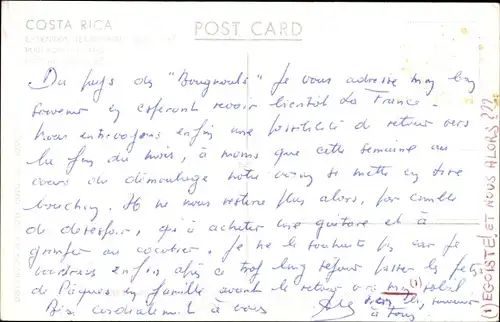 COSTA RICA
POST CARD
Du pays des "Bougnouls" Je vous adresse mon bon
souvenir en espérant revoir bientôt La France.
Nous entrevoyons enfin une possibilité de retour vers
la fin du mois, à moins que cette semaine au
cours du démoulage notre se mette en tire
bouchon. Il ne nous restera plus alors, par comble
de désespoir, qu'à acheter une guitare et à
grimper au cocotier. Je ne le souhaite pas car je
voudrais enfin après un trop long séjour passer les fêtes
de Pâques en famille avant le retour vers mon soleil
Bien cordialement à vous
à Tous
(1)
(1) EGOÏSTE! ET NOUS ALORS???